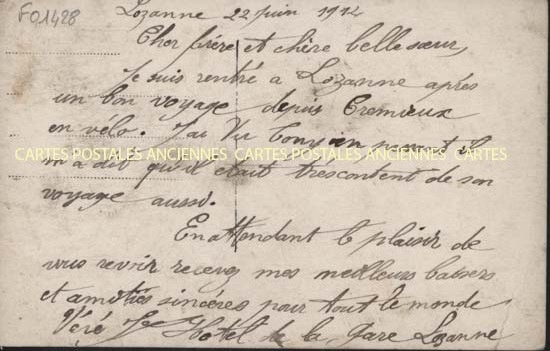 F01428
Lozanne 22 juin 1914
Cher frère et chère belle sœur,
Je suis rentré a Lozanne apres
un bon voyage depuis Cremieux
en vélo. J'ai Vu en passant il
CARTES POSTALES ANCIENNES CARTES POSTALES ANCIENNES CARTES
m'a dit qu'il était trescontent de son
voyage aussi.
En attendant le plaisir de
vous revoir recevez mes meilleurs baisers
et amitiés sincères pour tout le monde
Hotel de la Gare Lozanne